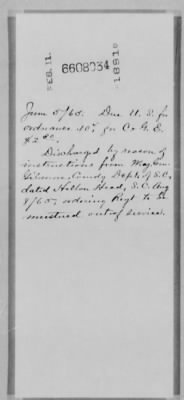 FEB. 11.
6608034
1881°
June 5/65. Due U. S. for
ordnance &c. Co G. E.
$2
Discharged by reason of
instructions from Maj. Gen.
Gilmore, Comdg Dept. of S.C.,
dated Hilton Head, S.C. Aug
8/65, ordering Regt to be
mustered out of service.